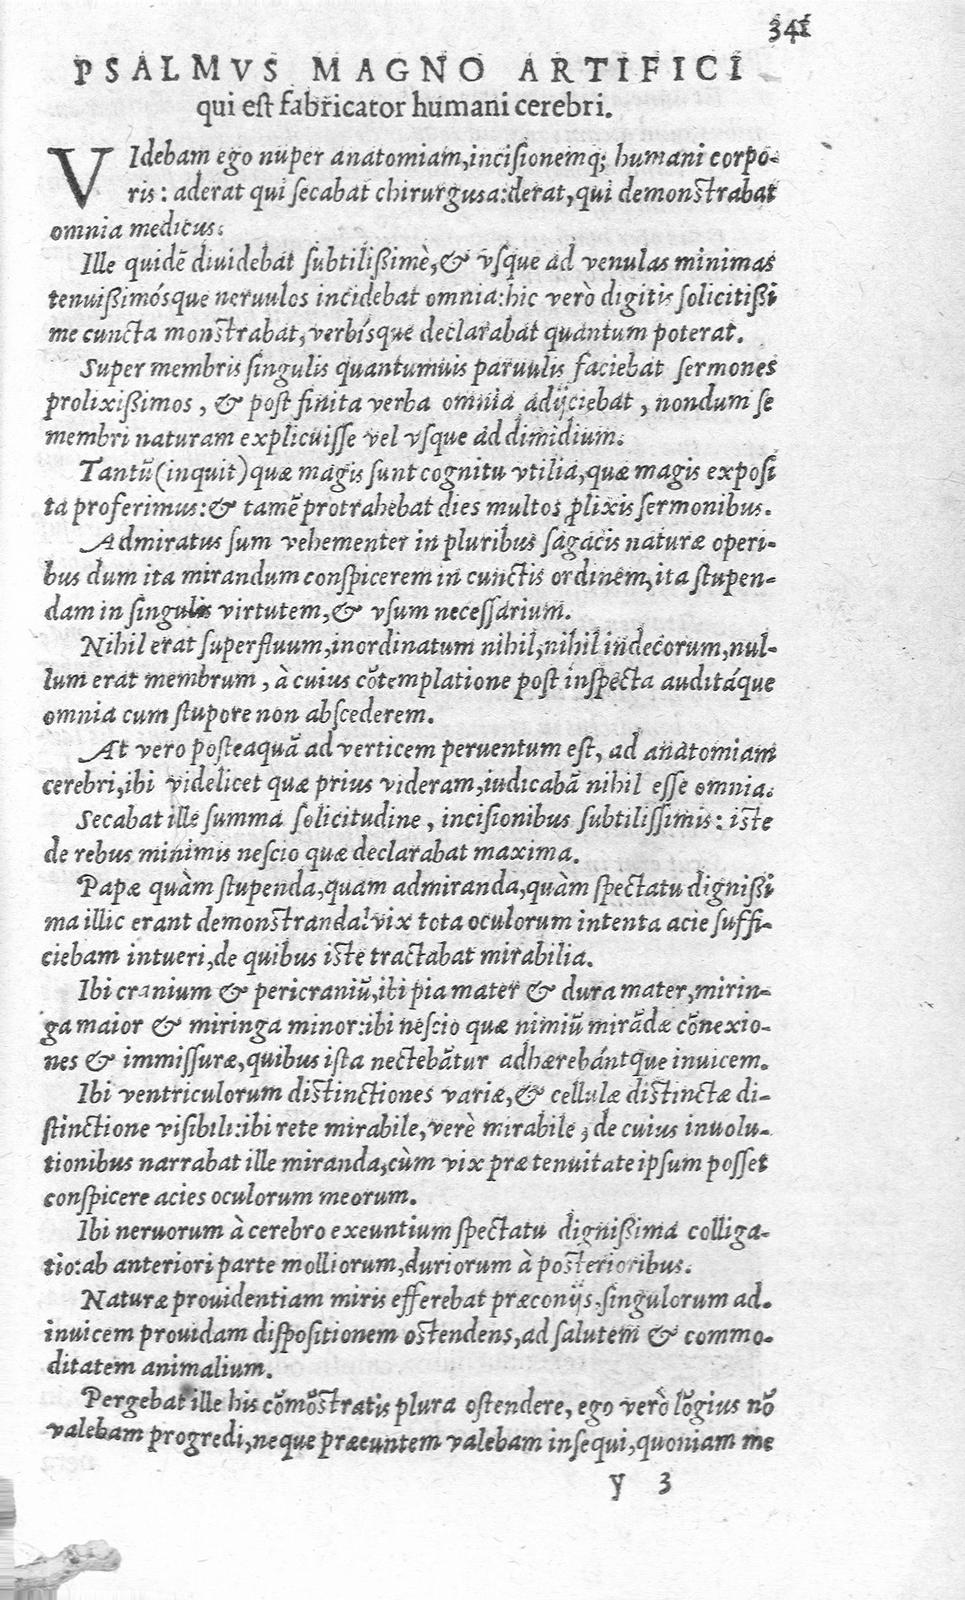 341
PSALMVS MAGNO ARTIFICI
qui est fabricator humani cerebri.
VIdebam ego nuper anatomiam,incisionemq; humani corpo-
ris: aderat qui secabat chirurgusa:derat, qui demonstrabat
omnia medicus:
Ille quidē diuidebat subtilißimè,& vsque ad venulas minimas
tenuißimósque neruulos incidebat omnia:hic verò digitis solicitißi
me cuncta monstrabat,verbísque declarabat quantum poterat.
Super membris singulis quantumuis paruulis faciebat sermones
prolixißimos, & post finita verba omnia adijciebat, nondum se
membri naturam explicuisse vel vsque ad dimidium.
Tantū(inquit)quæ magis sunt cognitu vtilia,quæ magis exposi
ta proferimus:& tamē protrahebat dies multos ꝓlixis sermonibus.
Admiratus sum vehementer in pluribus sagacis naturæ operi-
bus dum ita mirandum conspicerem in cunctis ordinem,ita stupen-
dam in singulis virtutem,& vsum necessarium.
Nihil erat superfluum,inordinatum nihil,nihil indecorum,nul-
lum erat membrum, à cuius cōtemplatione post inspecta auditáque
omnia cum stupore non abscederem.
At vero posteaquā ad verticem peruentum est, ad anatomiam
cerebri,ibi videlicet quæ prius videram,iudicabā nihil esse omnia.
Secabat ille summa solicitudine, incisionibus subtilissimis: iste
de rebus minimis nescio quæ declarabat maxima.
Papæ quàm stupenda,quam admiranda,quàm spectatu dignißi
ma illic erant demonstranda!vix tota oculorum intenta acie suffi-
ciebam intueri,de quibus iste tractabat mirabilia.
Ibi cranium & pericraniū,ibi pia mater & dura mater,mirin-
ga maior & miringa minor:ibi nescio quæ nimiū mirādæ cōnexio-
nes & immissuræ,quibus ista nectebātur adhærebántque inuicem.
Ibi ventriculorum distinctiones variæ,& cellulæ distinctæ di-
stinctione visibili:ibi rete mirabile,verè mirabile, de cuius inuolu-
tionibus narrabat ille miranda,cùm vix præ tenuitate ipsum posset
conspicere acies oculorum meorum.
Ibi neruorum à cerebro exeuntium spectatu dignißima colliga-
tio:ab anteriori parte molliorum,duriorum à posterioribus.
Naturæ prouidentiam miris efferebat præconijs,singulorum ad-
inuicem prouidam dispositionem ostendens,ad salutem & commo-
ditatem animalium.
Pergebat ille his cōmōstratis plura ostendere, ego verò lōgius nō
valebam progredi,neque præeuntem valebam insequi,quoniam me
y 3